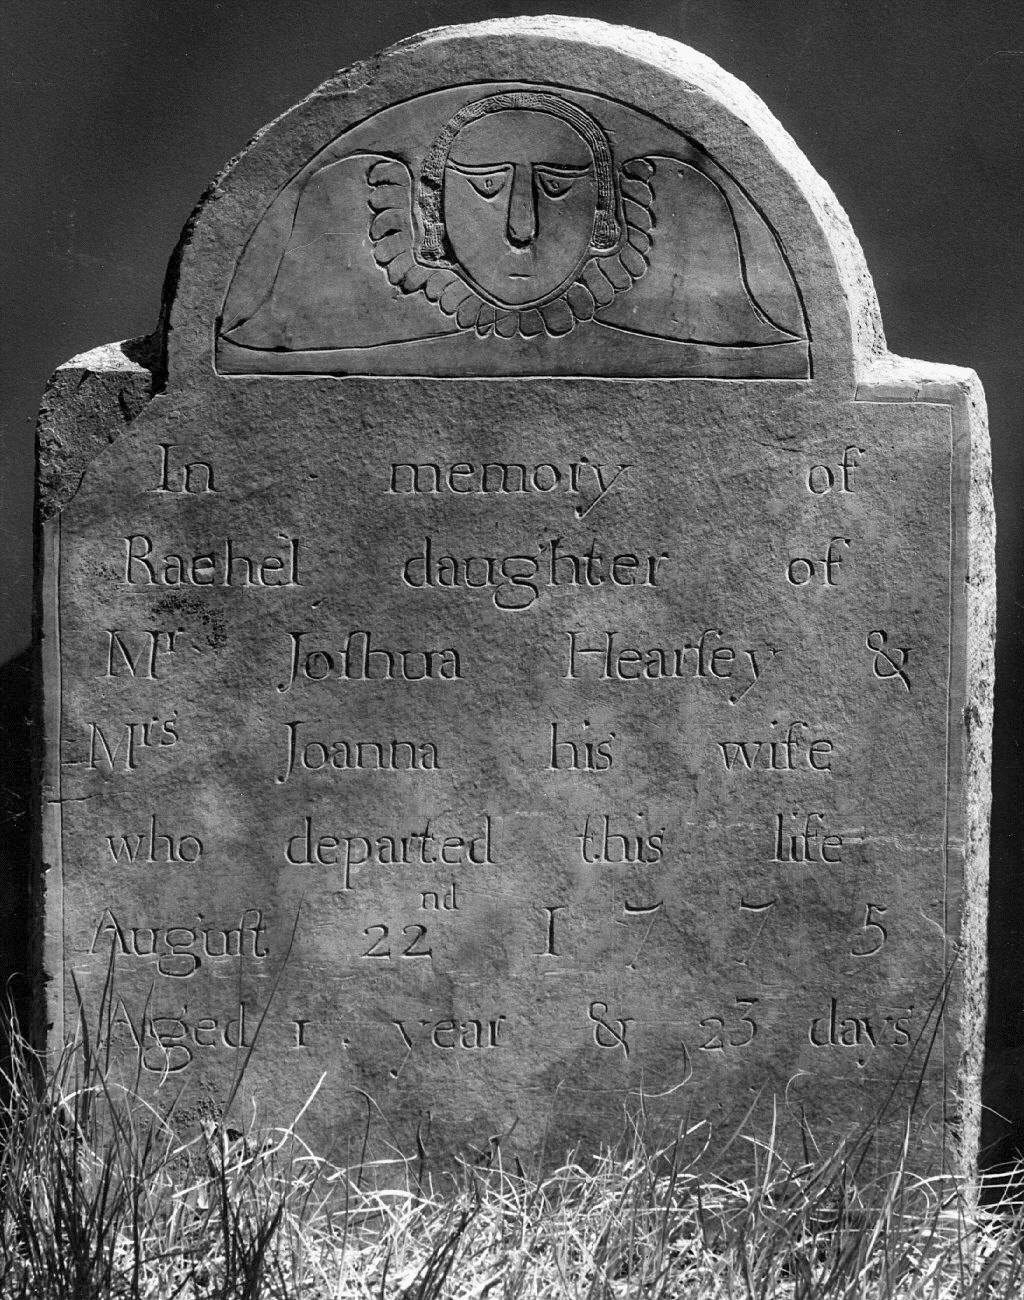 In memory of
Rachel daughter of
Mr Joſhua Hearſey &
Mrs Joanna his wife
who departed this life
Auguſt 22nd 1775
Aged 1. year & 23 days